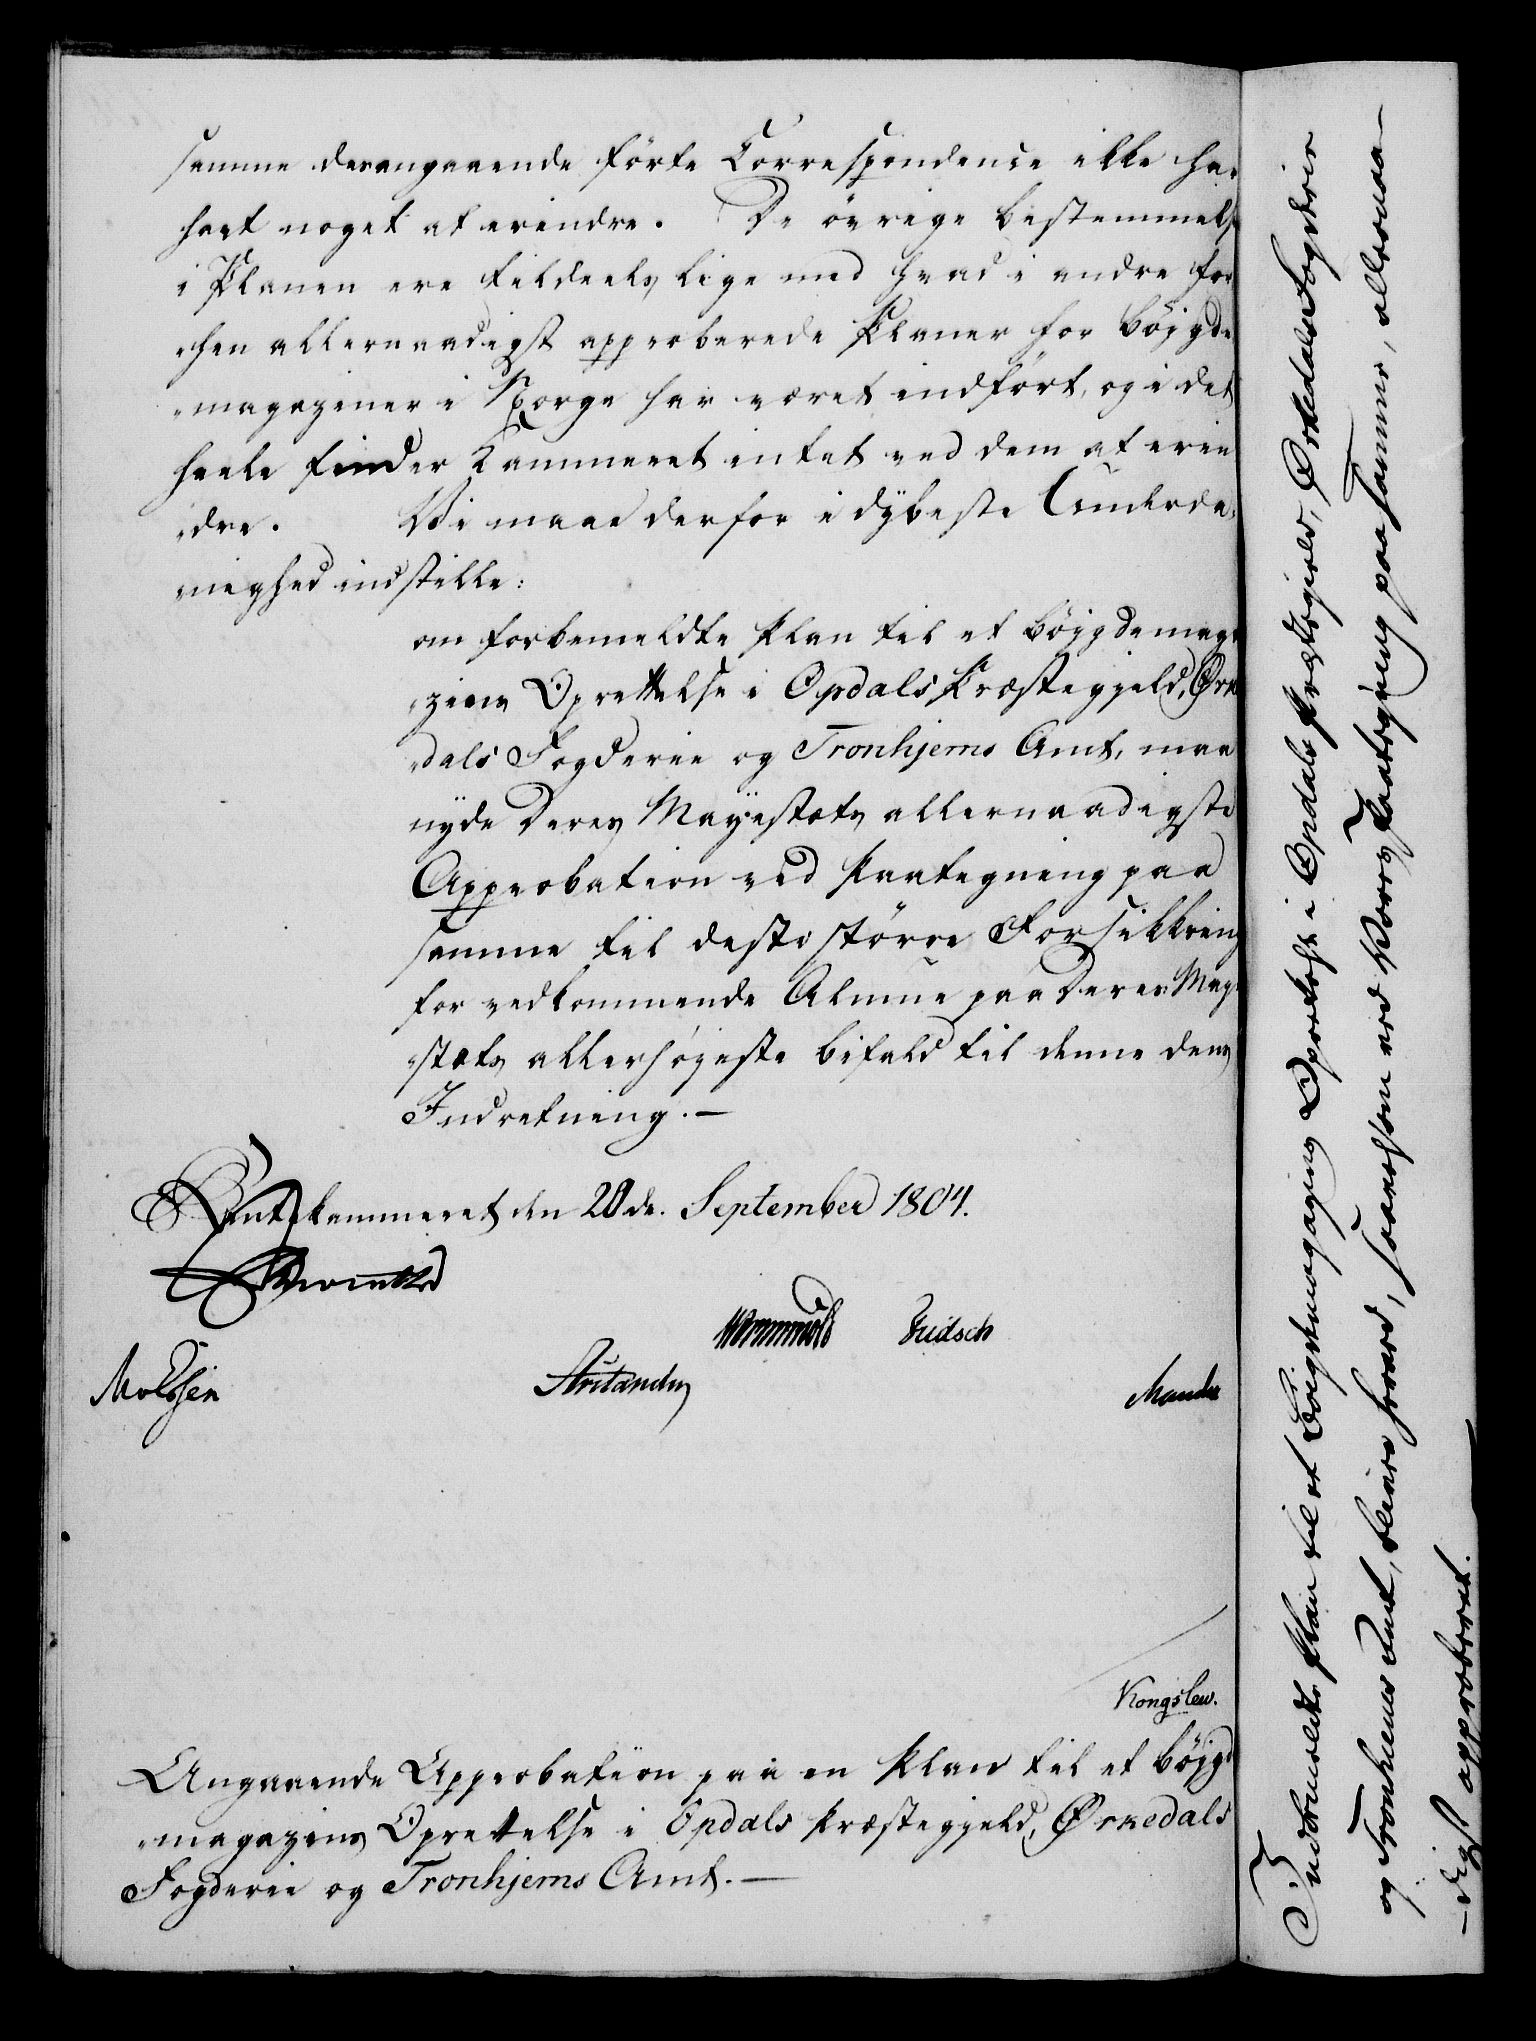 samme desangaaende førte Correspondence ikke har
havt noget at erindre. De øvrige bestemmels
i Planen ere tildeels lige med hvad i andre for
„hen allernaadigst approberede Planer for bøigde
„magaziner i Norge har været indført, og i det
heele finder Kammeret intet ved dem at erin
„dre. Vi maae derfor i dybeste Underda„
„nighed indstille:
om forbemeldte Plan til et bøigdemaga
„zins Oprettelse i Opdals Præstegjeld, Ørke
„dals Fogderie og Tronhjems Amt, maa
nyde Deres Mayestæts allernaadigste
Approbation ved Paategning paa
samme til desto større Forsikkring
for vedkommende Almue paa Deres Maye
„stæts allerhøyeste bifald til denne dens
Indretning.—
Rentekammeret den 20de. September 1804.
Wormskiold
Moldsen
Kongslew.
Angaaende Approbation paa en Plan til et bøigde
„magazins Oprettelse i Opdals Præstegjeld, Ørkedals
Fogderie og Tronhjems Amt.—
Indbemeldte Plan til et Bøigdemagazins Oprettelse i Opdals Præstegield, Ørkedals Fogderie
og Tronhiems Amt, bliver herved, saavelsom ved Vores Paategning paa samme, allernaa-
-digst approberet.